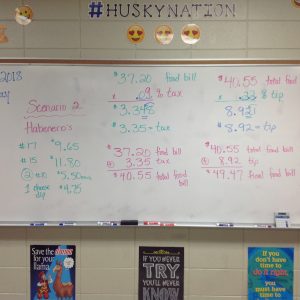 #HUSKYNATION
2018
ay
Scenario 2
Habenero's
#17 $9.65
#15 $11.80
② #10 $5.50
1 cheese dip $4.75
$37.20 food bill
x .09 % tax
3.348
$3.35 = tax
37.20 food bill
⊕ 3.35 tax
$40.55 total food bill
$40.55 total food bill
x .22 % tip
8.921
$8.92 = tip
$40.55 total food bill
⊕ 8.92 tip
$49.47 final food bill
Save the drama
for your
llama.
IF YOU NEVER
TRY,
YOU'LL NEVER
KNOW
If you
don't have
time to
do it right,
you must
have time to